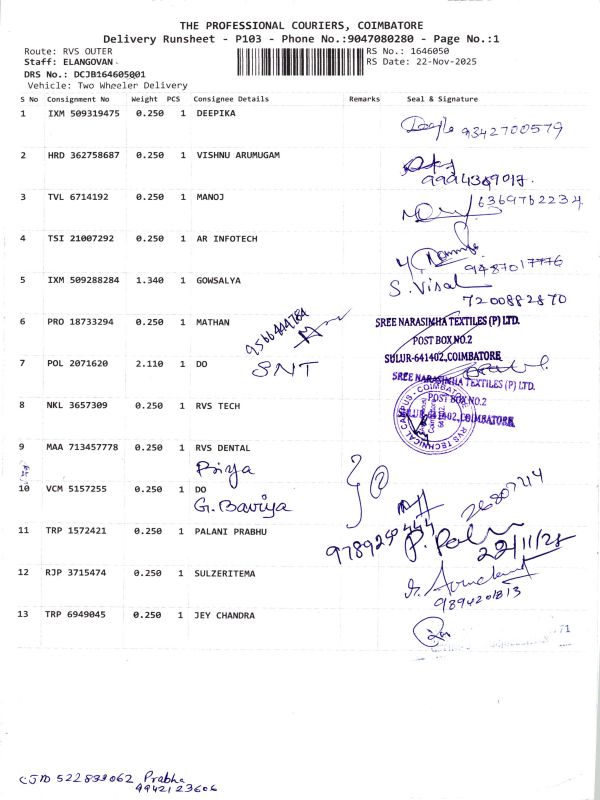 THE PROFESSIONAL COURIERS, COIMBATORE
Delivery Runsheet - P103 - Phone No.:9047080280 - Page No.:1
Route: RVS OUTER RS No.: 1646050
Staff: ELANGOVAN RS Date: 22-Nov-2025
DRS No.: DCJB164605001
Vehicle: Two Wheeler Delivery
S No Consignment No Weight PCS Consignee Details Remarks Seal & Signature
1 IXM 509319475 0.250 1 DEEPIKA
9342700579
2 HRD 362758687 0.250 1 VISHNU ARUMUGAM
9994369017
3 TVL 6714192 0.250 1 MANOJ 6369762234
4 TSI 21007292 0.250 1 AR INFOTECH
9487017776
5 IXM 509288284 1.340 1 GOWSALYA S. Visal
7200882870
6 PRO 18733294 0.250 1 MATHAN 9566444784 SREE NARASIMHA TEXTILES (P) LTD.
POST BOX NO.2
SULUR-641402, COIMBATORE
7 POL 2071620 2.110 1 DO
SNT SREE NARASIMHA TEXTILES (P) LTD.
POST BOX NO.2
SULUR-641402, COIMBATORE
8 NKL 3657309 0.250 1 RVS TECH RVS TECHNICAL CAMPUS - COIMBATORE
9 MAA 713457778 0.250 1 RVS DENTAL
Priya
10 VCM 5157255 0.250 1 DO
G. Baviya
11 TRP 1572421 0.250 1 PALANI PRABHU
22/11/25
12 RJP 3715474 0.250 1 SULZERITEMA
9894201813
13 TRP 6949045 0.250 1 JEY CHANDRA
71
CJD 522839062 Prabha
9942123606